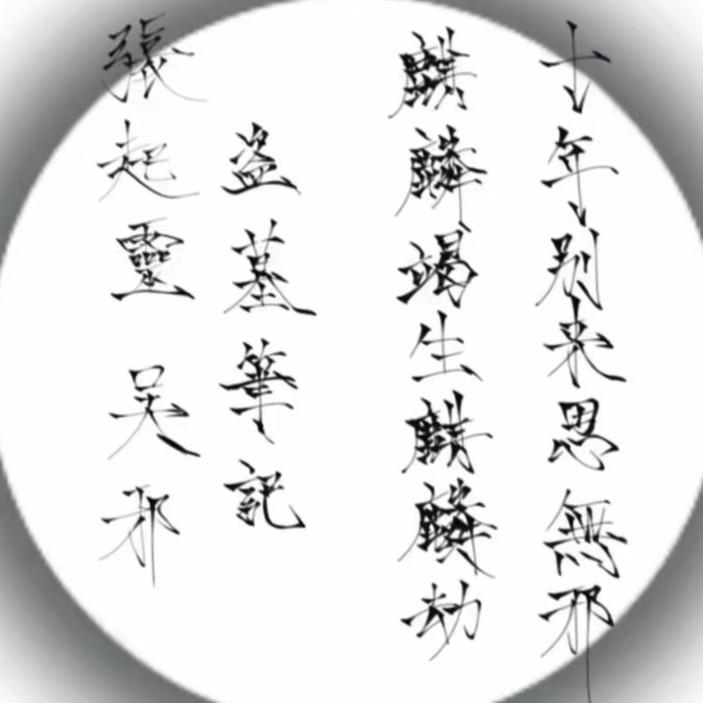 十年别来思無邪
麒麟竭生麒麟劫
盗墓筆記
張起靈 吴邪